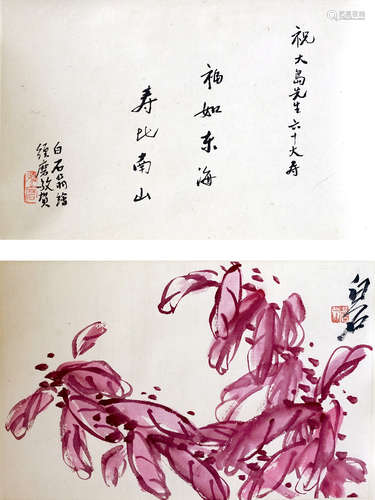 祝大岛先生六十大寿
福如东海
寿比南山
白石翁
敬贺
白石